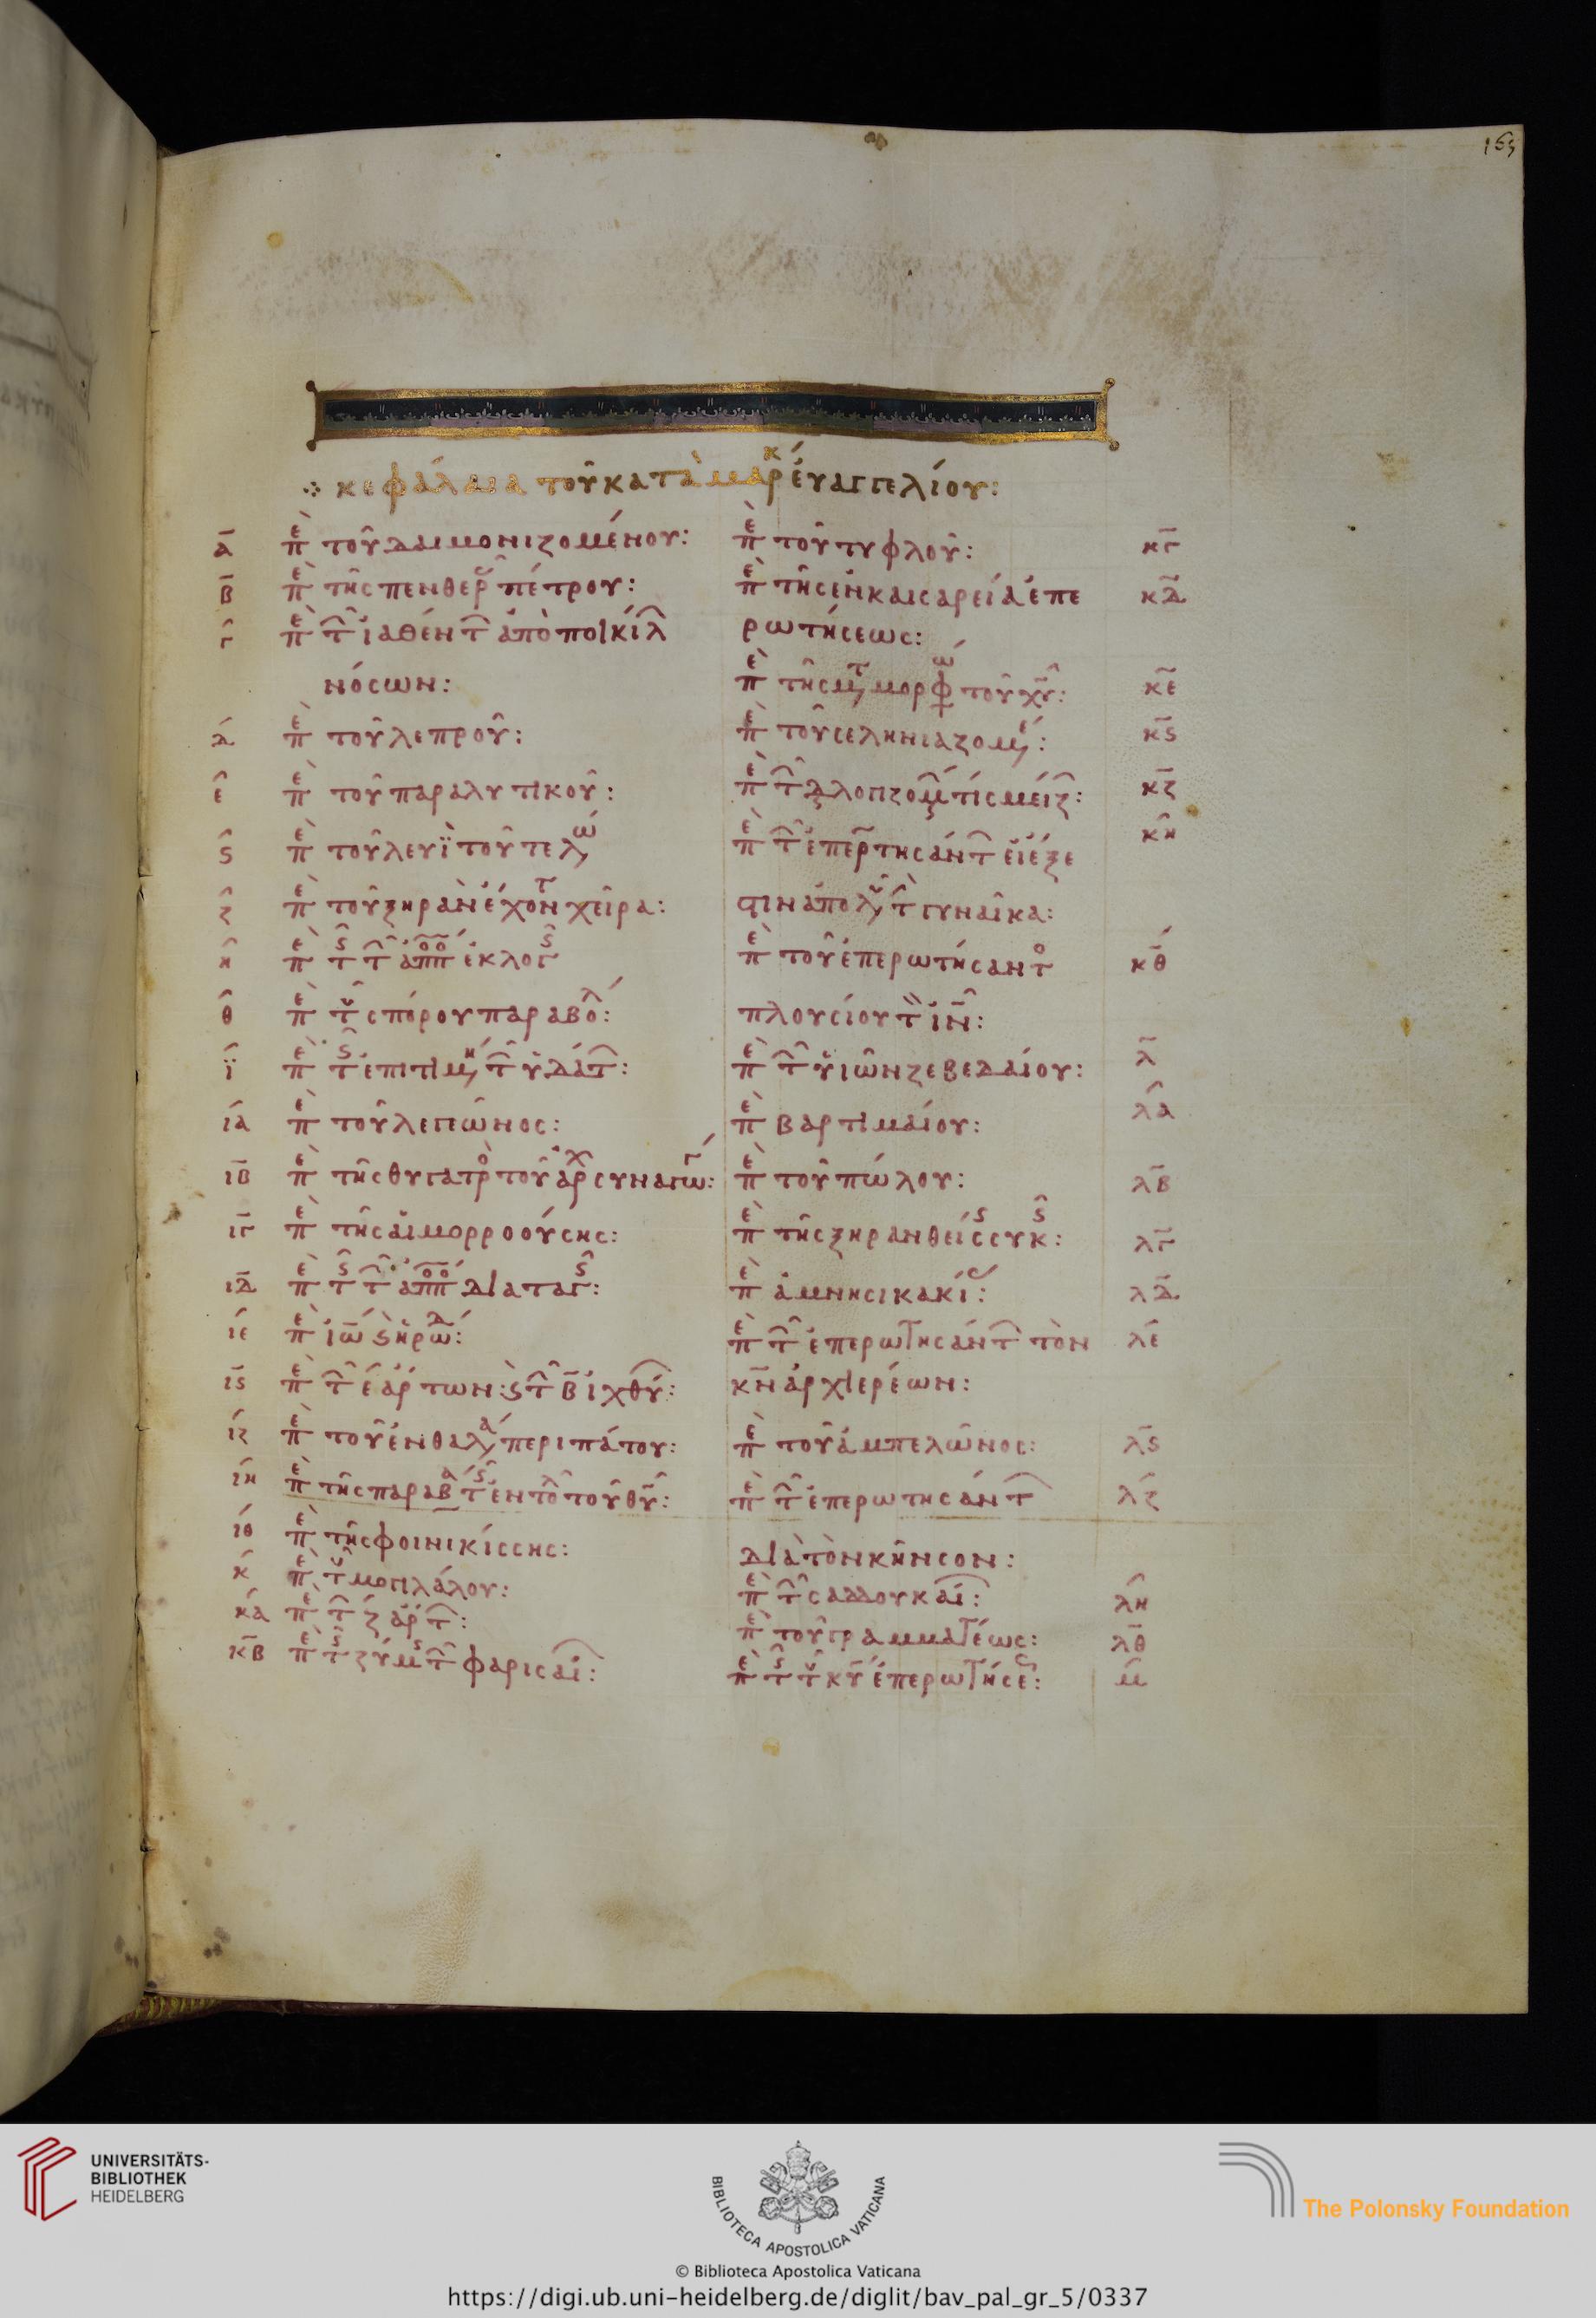 163
κεφάλαια τοῦ κατὰ μαρκ εὐαγγελίου:
α περὶ τοῦ δαιμονιζομένου:
β περὶ τῆς πενθερ πέτρου:
γ περὶ τ ἰαθέντ ἀπὸ ποικίλ
νόσων:
δ περὶ τοῦ λεπροῦ:
ε περὶ τοῦ παραλυτικοῦ:
ϛ περὶ τοῦ λευῒ τοῦ τελω
ζ περὶ τοῦ ξηρὰν ἔχοντ χεῖρα:
η περὶ τ τ ἀποπο ἐκλογ
θ περὶ τ σπόρου παραβολ:
ϊ περὶ τ ἐπιτιμη τ ὑδάτ:
ια περὶ τοῦ λεγεῶνος:
ιβ περὶ τῆς θυγατρο τοῦ ἀρχ συναγω:
ιγ περὶ τῆς αἱμορροούσης:
ιδ περὶ τ τ ἀποπο διαταγ:
ιε περὶ ἰω ϛ ἡρωδ:
ιϛ περὶ τ ε ἄρτων: ϛ τ β ἰχθύ:
ιζ περὶ τοῦ ἐν θαλα περιπάτου:
ιη περὶ τῆς παραβα τ ἐντολ τοῦ θυ:
ιθ περὶ τῆς φοινικίσσης:
κ περὶ τ μογιλάλου:
κα περὶ τ ζ ἄρτ:
κβ περὶ τ ζύμ τ φαρισαί:
περὶ τοῦ τυφλοῦ: κγ
περὶ τῆς ἐν καισαρείᾳ ἐπε κδ
ρωτήσεως:
περὶ τῆς μετ μορφω τοῦ χυ: κε
περὶ τοῦ σεληνιαζομε: κϛ
περὶ τ διαλογιζομ τίς μείζ: κζ
περὶ τ ἐπερτησάντ εἰ ἔξε κη
στιν ἀπολυ τ γυναῖκα:
περὶ τοῦ ἐπερωτήσαντο κθ
πλουσίου τ ιν:
περὶ τ υἱῶν ζεβεδαίου: λ
περὶ βαρτιμαίου: λα
περὶ τοῦ πώλου: λβ
περὶ τῆς ξηρανθείσ συκ: λγ
περὶ ἀμνησικακί: λδ
περὶ τ ἐπερωτησάντ τὸν λε
κν ἀρχιερέων:
περὶ τοῦ ἀμπελῶνος: λϛ
περὶ τ ἐπερωτησάντ λζ
διὰ τὸν κῆνσον:
περὶ τ σαδδουκαί: λη
περὶ τοῦ γραμματέως: λθ
περὶ τ τ κυ ἐπερωτήσε: μ
UNIVERSITÄTS-
BIBLIOTHEK
HEIDELBERG
BIBLIOTECA APOSTOLICA VATICANA
The Polonsky Foundation
© Biblioteca Apostolica Vaticana
https://digi.ub.uni-heidelberg.de/diglit/bav_pal_gr_5/0337